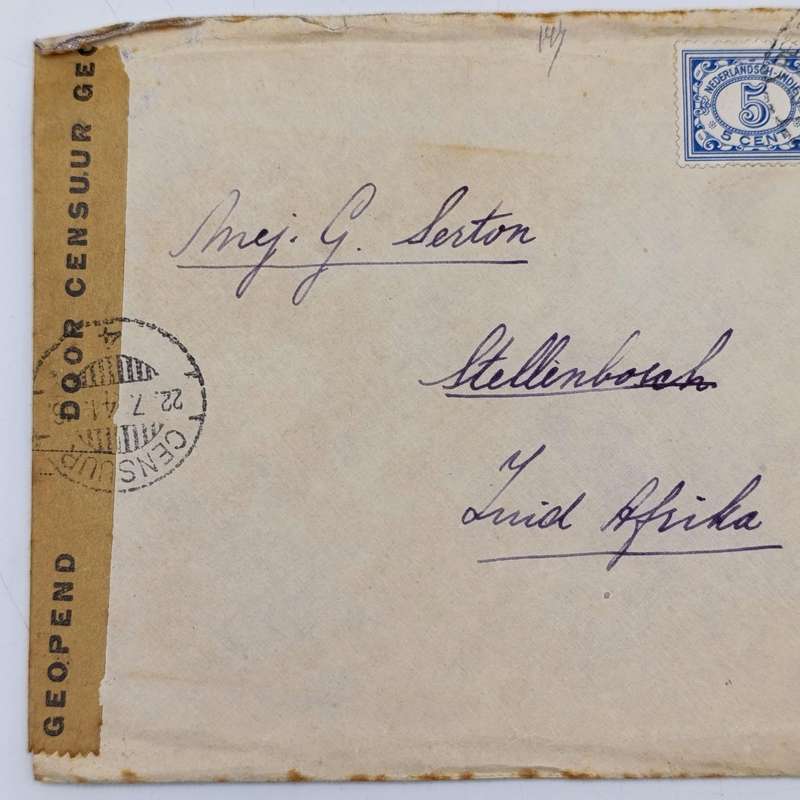 147
NEDERLANDSCH-INDIË
5
5 CENT
Mej. G. Serton
Stellenbosch
Zuid Afrika
GEOPEND DOOR CENSUUR GEO
CENSUUR
22.7.41
4